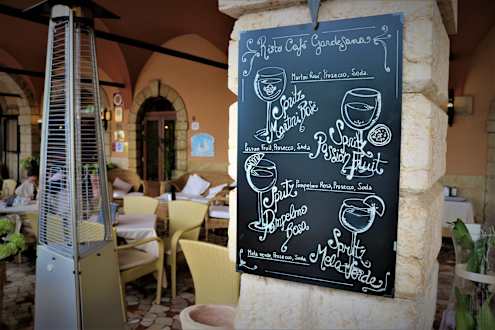 Risto Café Gardesana
Martini Rosé, Prosecco, Soda
Spritz
Martini Rosé
Passion Fruit, Prosecco, Soda
Spritz
Passion Fruit
Pompelmo Rosa, Prosecco, Soda
Spritz
Pompelmo
Rosa
Spritz
Mela Verde
Mela verde, Prosecco, Soda